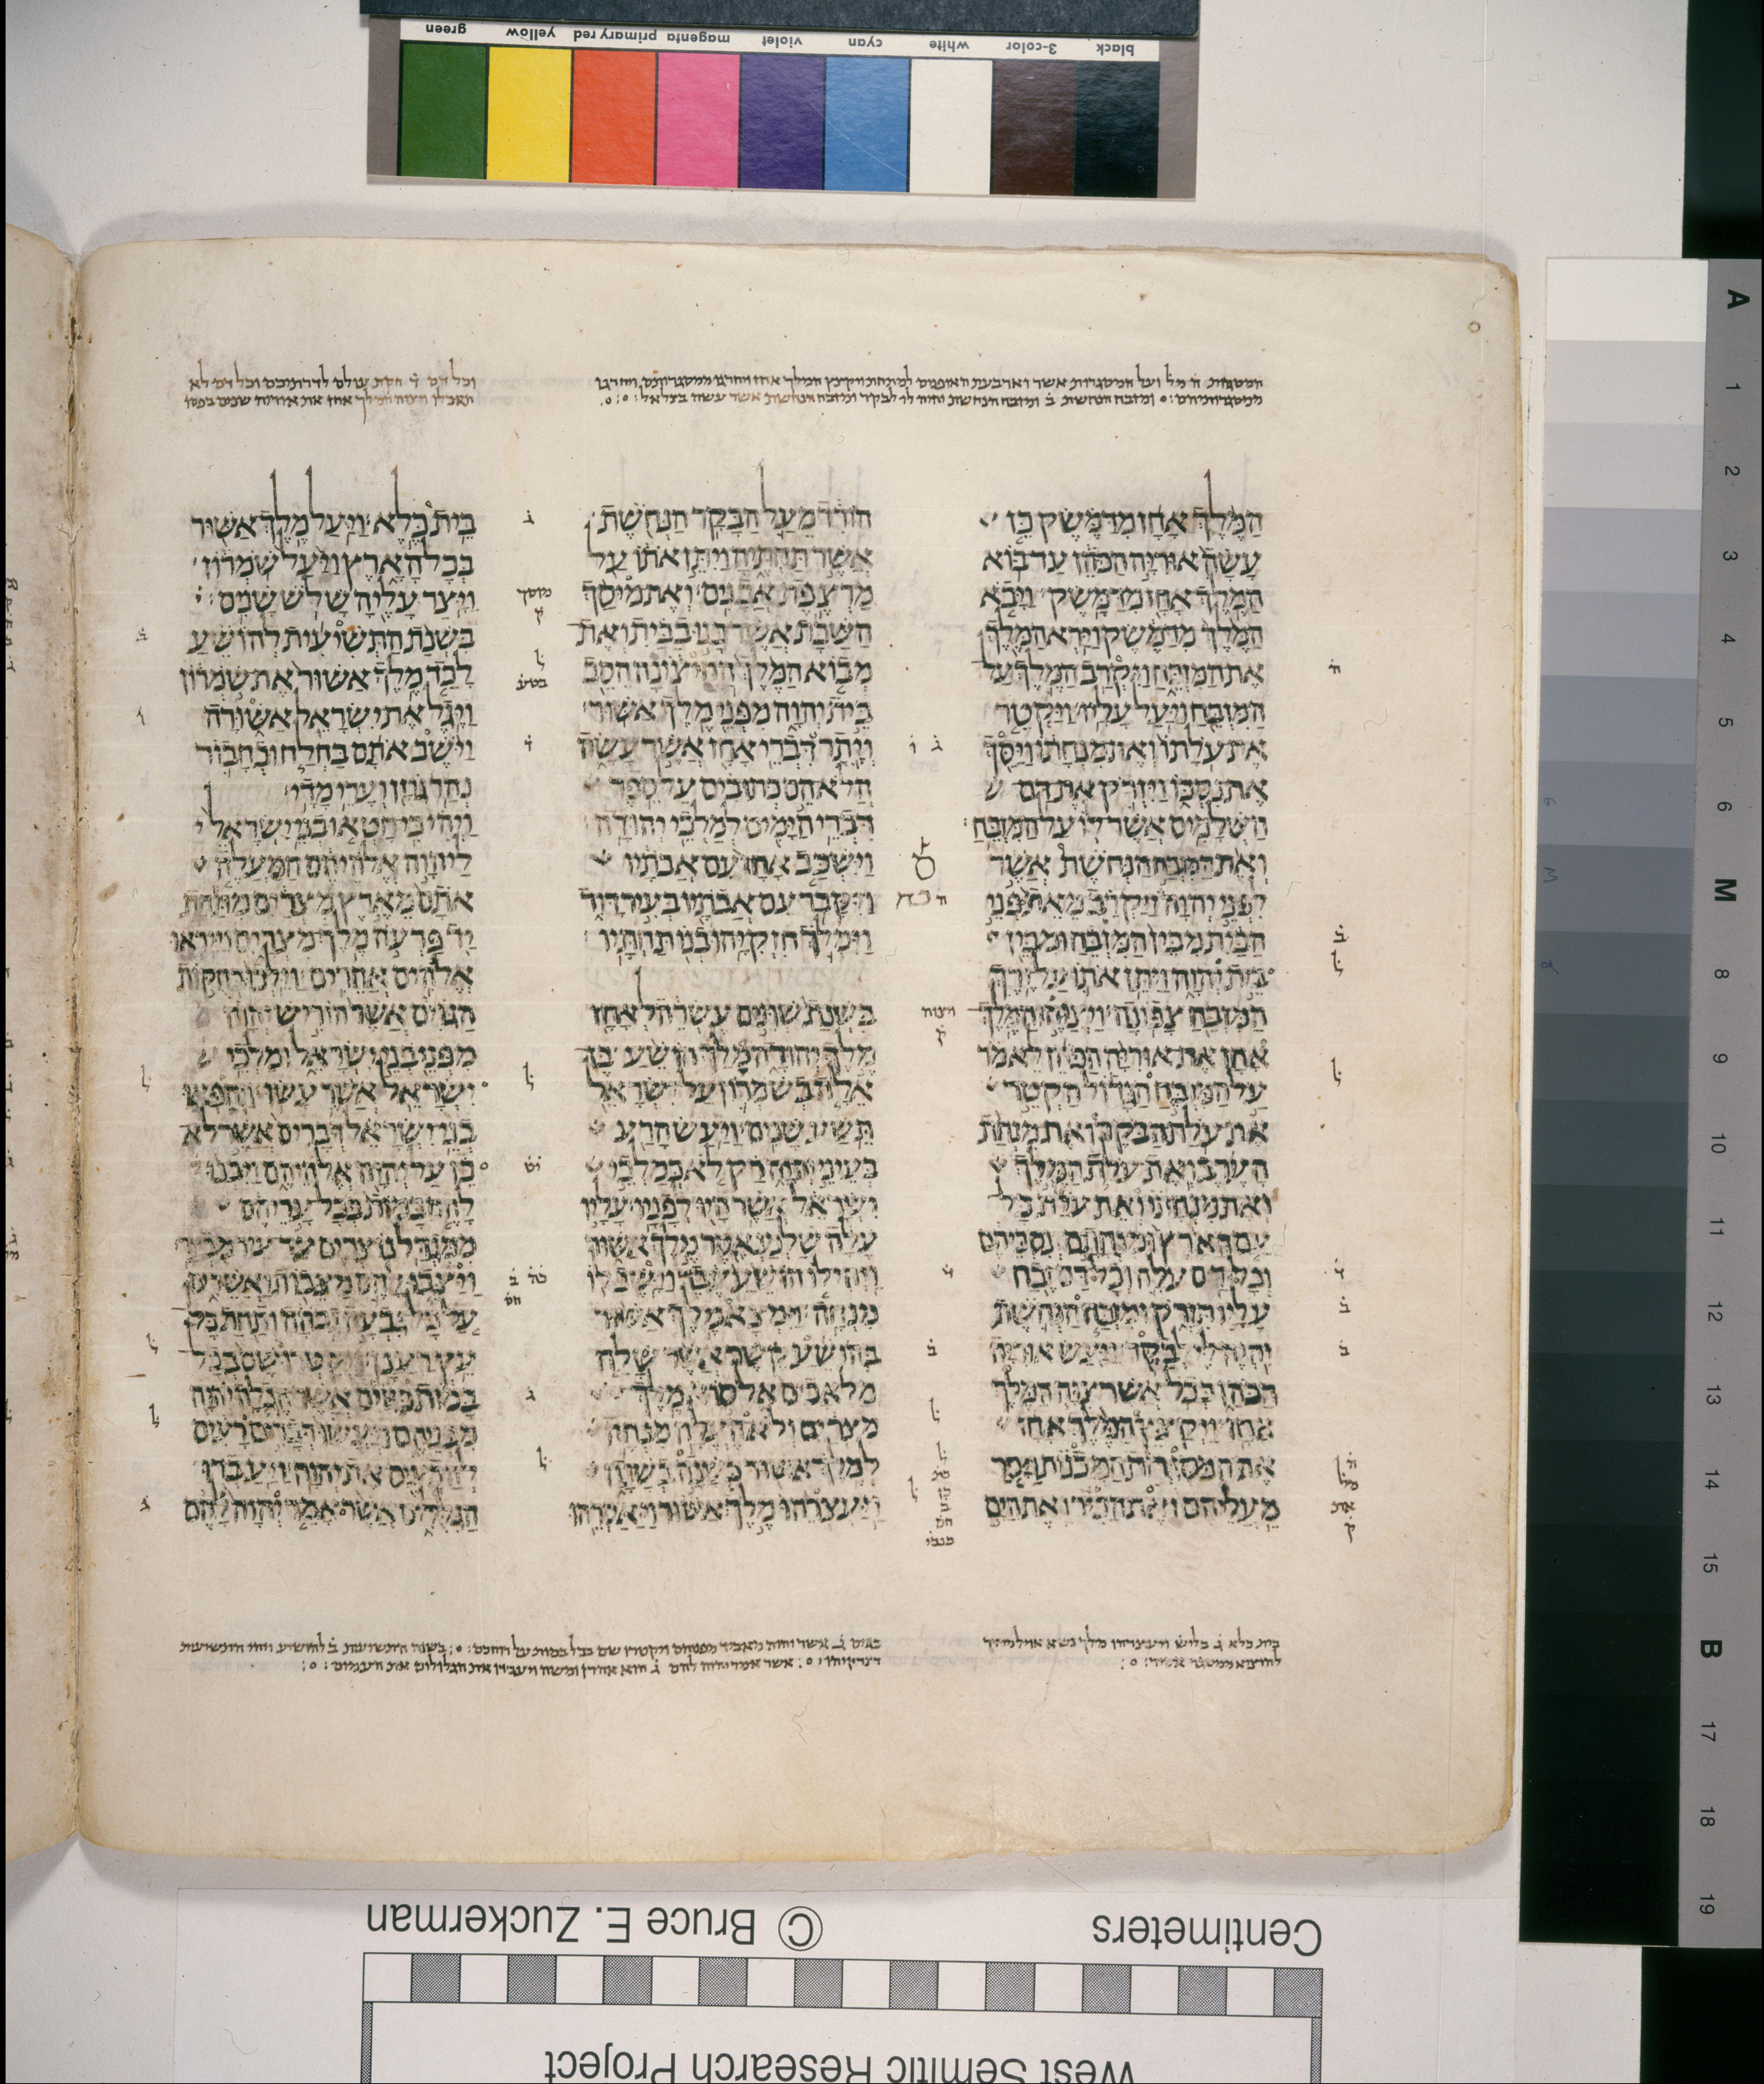 green yellow primary red magenta violet cyan white 3-color black
המלך אחז מדמשק כן
עשה אוריה הכהן עד בוא
המלך אחז מדמשק ויבא
המלך מדמשק וירא המלך
את המזבח ויקרב המלך על
המזבח ויעל עליו ויקטר
את עלתו ואת מנחתו ויסך
את נסכו ויזרק את דם
השלמים אשר לו על המזבח
ואת המזבח הנחשת אשר
לפני יהוה ויקרב מאת פני
הבית מבין המזבח ומבין
בית יהוה ויתן אתו על ירך
המזבח צפונה ויצוהו המלך
אחז את אוריה הכהן לאמר
על המזבח הגדול הקטר
את עלת הבקר ואת מנחת
הערב ואת עלת המלך
ואת מנחתו ואת עלת כל
עם הארץ ומנחתם ונסכיהם
וכל דם עלה וכל דם זבח
עליו תזרק ומזבח הנחשת
יהיה לי לבקר ויעש אוריה
הכהן ככל אשר צוה המלך
אחז ויקצץ המלך אחז
את המסגרות המכנות ויסר
מעליהם ואת הכיר ואת הים
הורד מעל הבקר הנחשת
אשר תחתיה ויתן אתו על
מרצפת אבנים ואת מיסך
השבת אשר בנו בבית ואת
מבוא המלך החיצונה הסב
בית יהוה מפני מלך אשור
ויתר דברי אחז אשר עשה
הלא הם כתובים על ספר
דברי הימים למלכי יהודה
וישכב אחז עם אבתיו
ויקבר עם אבתיו בעיר דוד
וימלך חזקיהו בנו תחתיו
בשנת שתים עשרה לאחז
מלך יהודה מלך הושע בן
אלה בשמרון על ישראל
תשע שנים ויעש הרע
בעיני יהוה רק לא כמלכי
ישראל אשר היו לפניו עליו
עלה שלמנאסר מלך אשור
ויהי לו הושע עבד וישב לו
מנחה וימצא מלך אשור
בהושע קשר אשר שלח
מלאכים אל סוא מלך
מצרים ולא העלה מנחה
למלך אשור כשנה בשנה
ויעצרהו מלך אשור ויאסרהו
בית כלא ויעל מלך אשור
בכל הארץ ויעל שמרון
ויצר עליה שלש שנים
בשנת התשיעית להושע
לכד מלך אשור את שמרון
ויגל את ישראל אשורה
וישב אתם בחלח ובחבור
נהר גוזן וערי מדי
ויהי כי חטאו בני ישראל
ליהוה אלהיהם המעלה
אתם מארץ מצרים מתחת
יד פרעה מלך מצרים וייראו
אלהים אחרים וילכו בחקות
הגוים אשר הוריש יהוה
מפני בני ישראל ומלכי
ישראל אשר עשו ויחפאו
בני ישראל דברים אשר לא
כן על יהוה אלהיהם ויבנו
להם במות בכל עריהם
ממגדל נוצרים עד עיר מבצר
ויצבו להם מצבות ואשרים
על כל גבעה גבהה ותחת כל
עץ רענן ויקטרו שם בכל
במות כגוים אשר הגלה יהוה
מפניהם ויעשו דברים רעים
להכעיס את יהוה ויעבדו
הגללים אשר אמר יהוה להם
A 1 2 3 4 5 6 M 8 9 10 11 12 13 14 15 B 17 18 19
Centimeters © Bruce E. Zuckerman
West Semitic Research Project